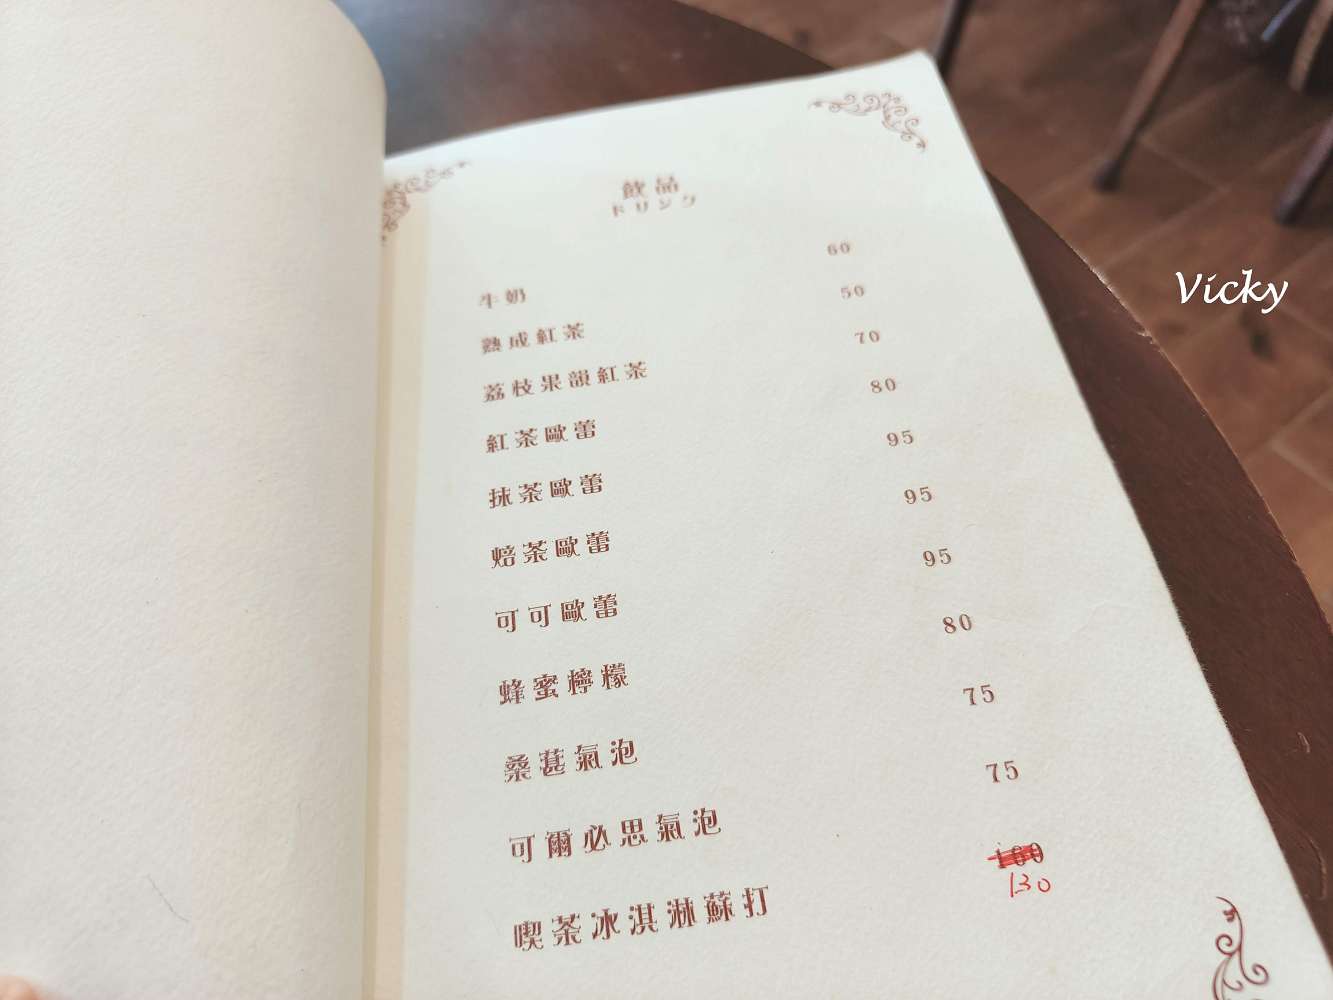 飲品
ドリンク
牛奶 60
熟成紅茶 50
荔枝果韻紅茶 70
紅茶歐蕾 80
抹茶歐蕾 95
焙茶歐蕾 95
可可歐蕾 95
蜂蜜檸檬 80
桑葚氣泡 75
可爾必思氣泡 75
喫茶冰淇淋蘇打
130
Vicky